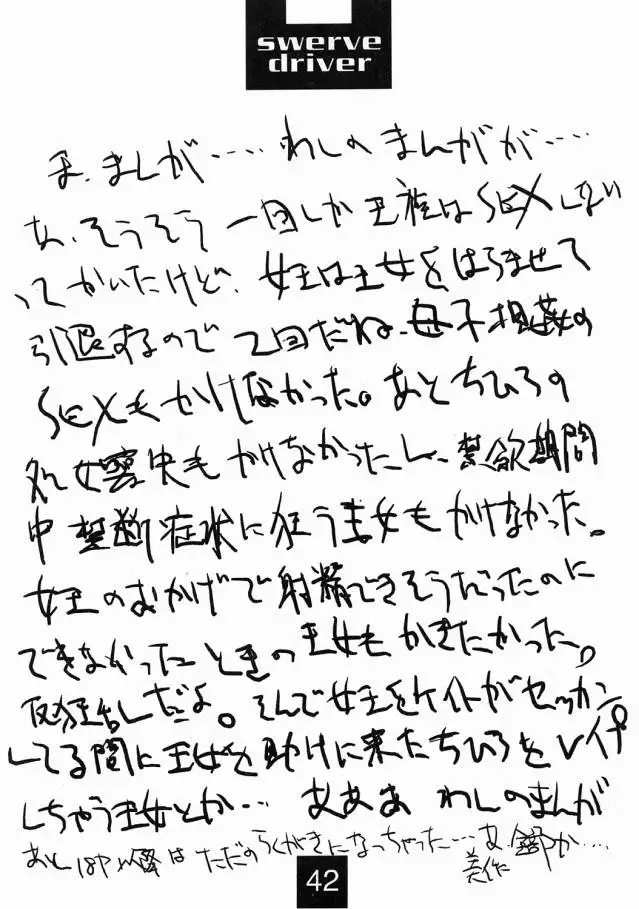 swerve
driver
ま、まんが‥‥わしのまんがが‥‥
あ、そうそう 一回しか王族はSEXしない
ってかいたけど、女王は王女をはらませて
引退するので2回だね。母子相姦の
SEXもかけなかった。あとちひろの
処女喪失もかけなかったし、禁欲期間
中禁断症状に狂う王女もかけなかった。
女王のおかげで射精できそうだったのに
できなかったときの王女もかきたかった。
半狂乱だよ。そんで女王をケイトがセッカン
してる間に王女を助けに来たちひろをレイプ
しちゃう王女とか‥‥ あああ わしのまんが
あと 以降は ただのらくがきになっちゃった‥‥あ、
42